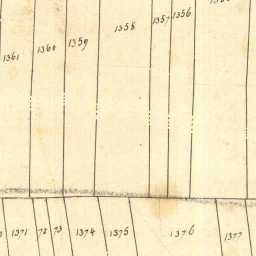 1361 1360 1359 1358 1357 1356
1371 72 73 1374 1375 1376 1377